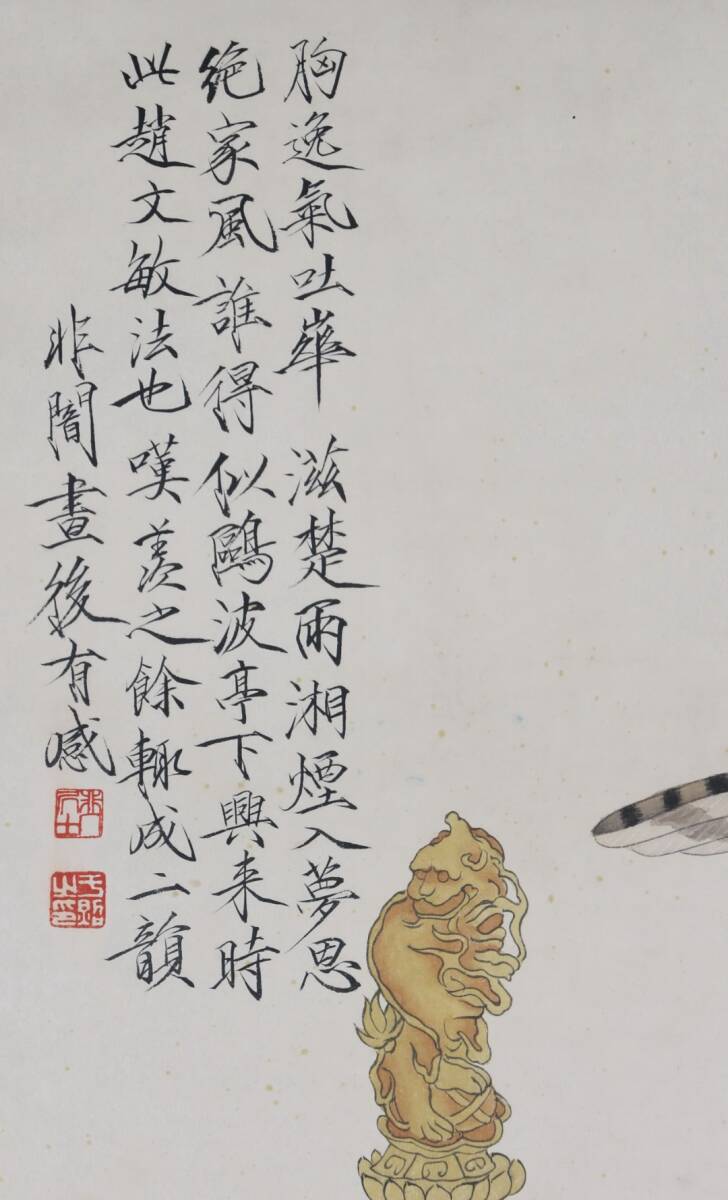 胸逸氣吐華滋楚雨湘煙入夢思
絶家風誰得似鷗波亭下興来時
此趙文敏法也嘆羨之餘輙成二韻
非闇畫後有感
于照之印